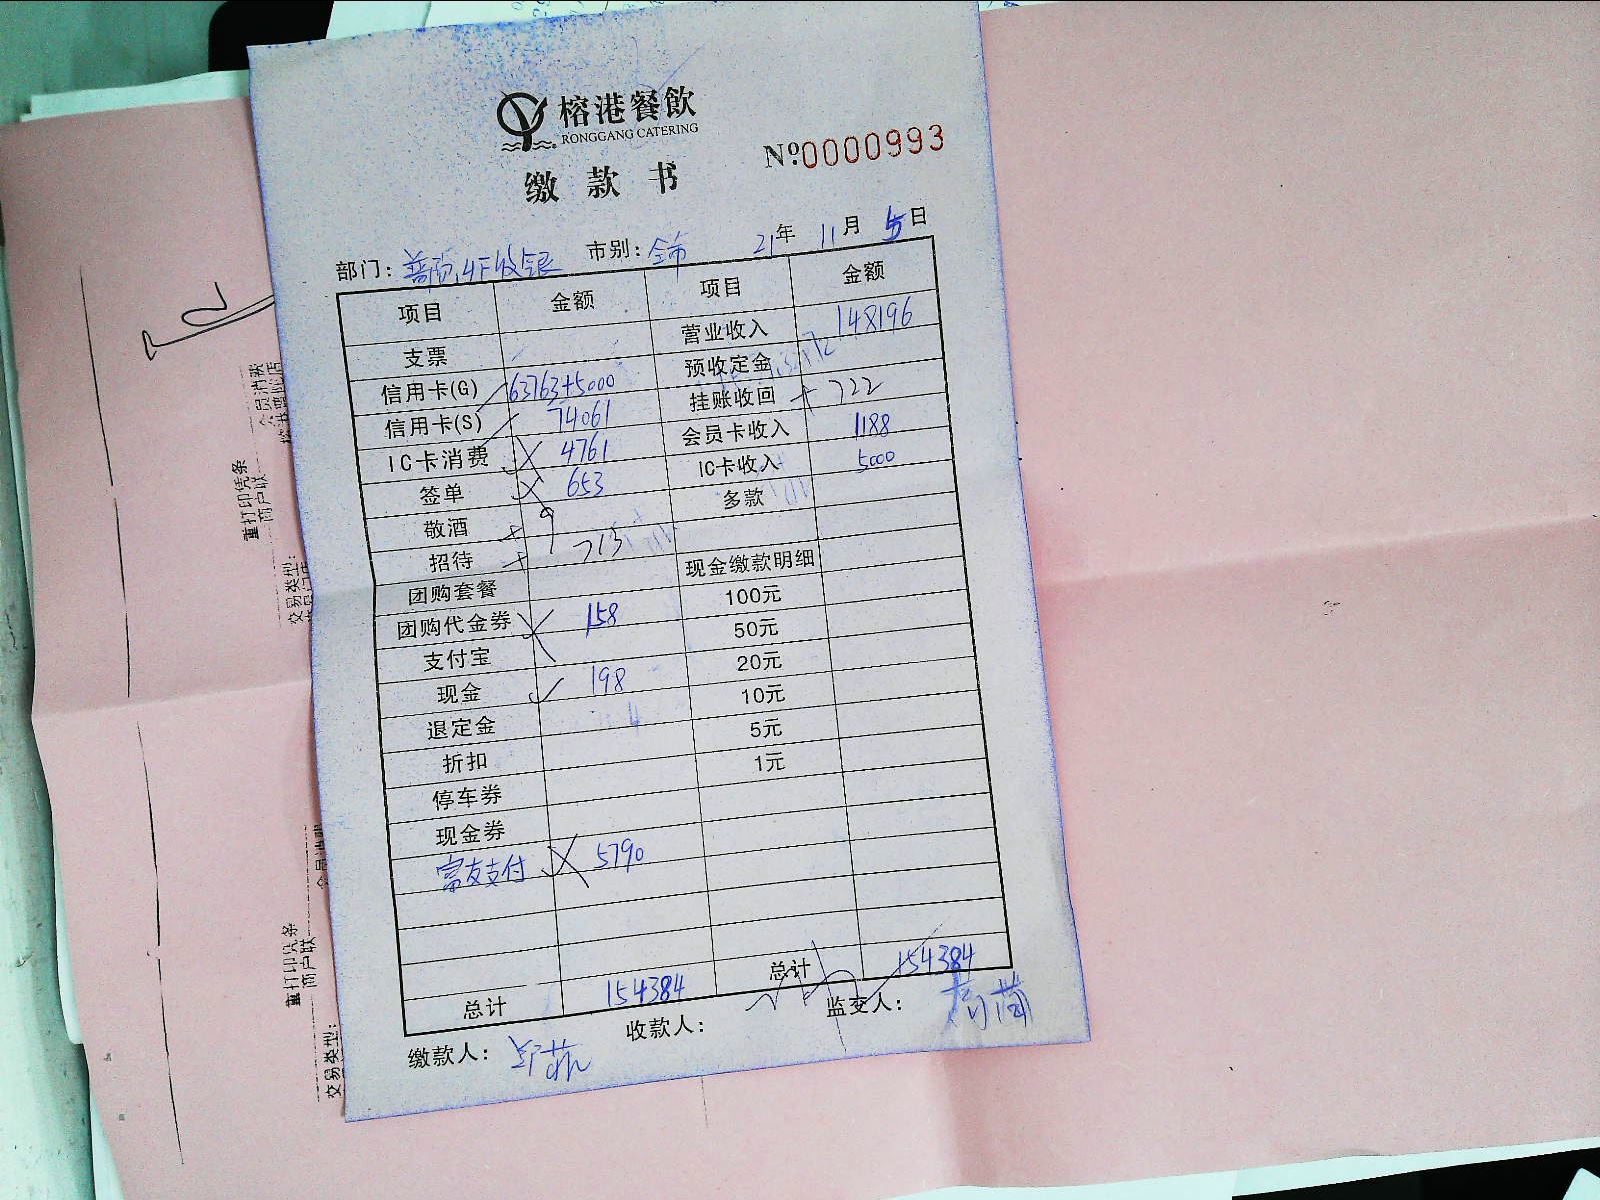 榕港餐飲
RONGGANG CATERING
缴款书
Nº0000993
部门: 4F收银 市别: 全市 21年 11月 5日
项目 金额 项目 金额
支票 营业收入 148196
信用卡(G) 63763+5000 预收定金
信用卡(S) 74061 挂账收回 722
IC卡消费 4761 会员卡收入 1188
签单 653 IC卡收入 5000
敬酒 多款
招待 713
团购套餐 现金缴款明细
团购代金券 158 100元
支付宝 50元
现金 198 20元
退定金 10元
折扣 5元
停车券 1元
现金券
富友支付 5790
总计 154384 总计 154384
缴款人: 收款人: 监交人:
重打印凭条
商户联
交易类型:
会员消费
重打印凭条
商户联
交易类型: